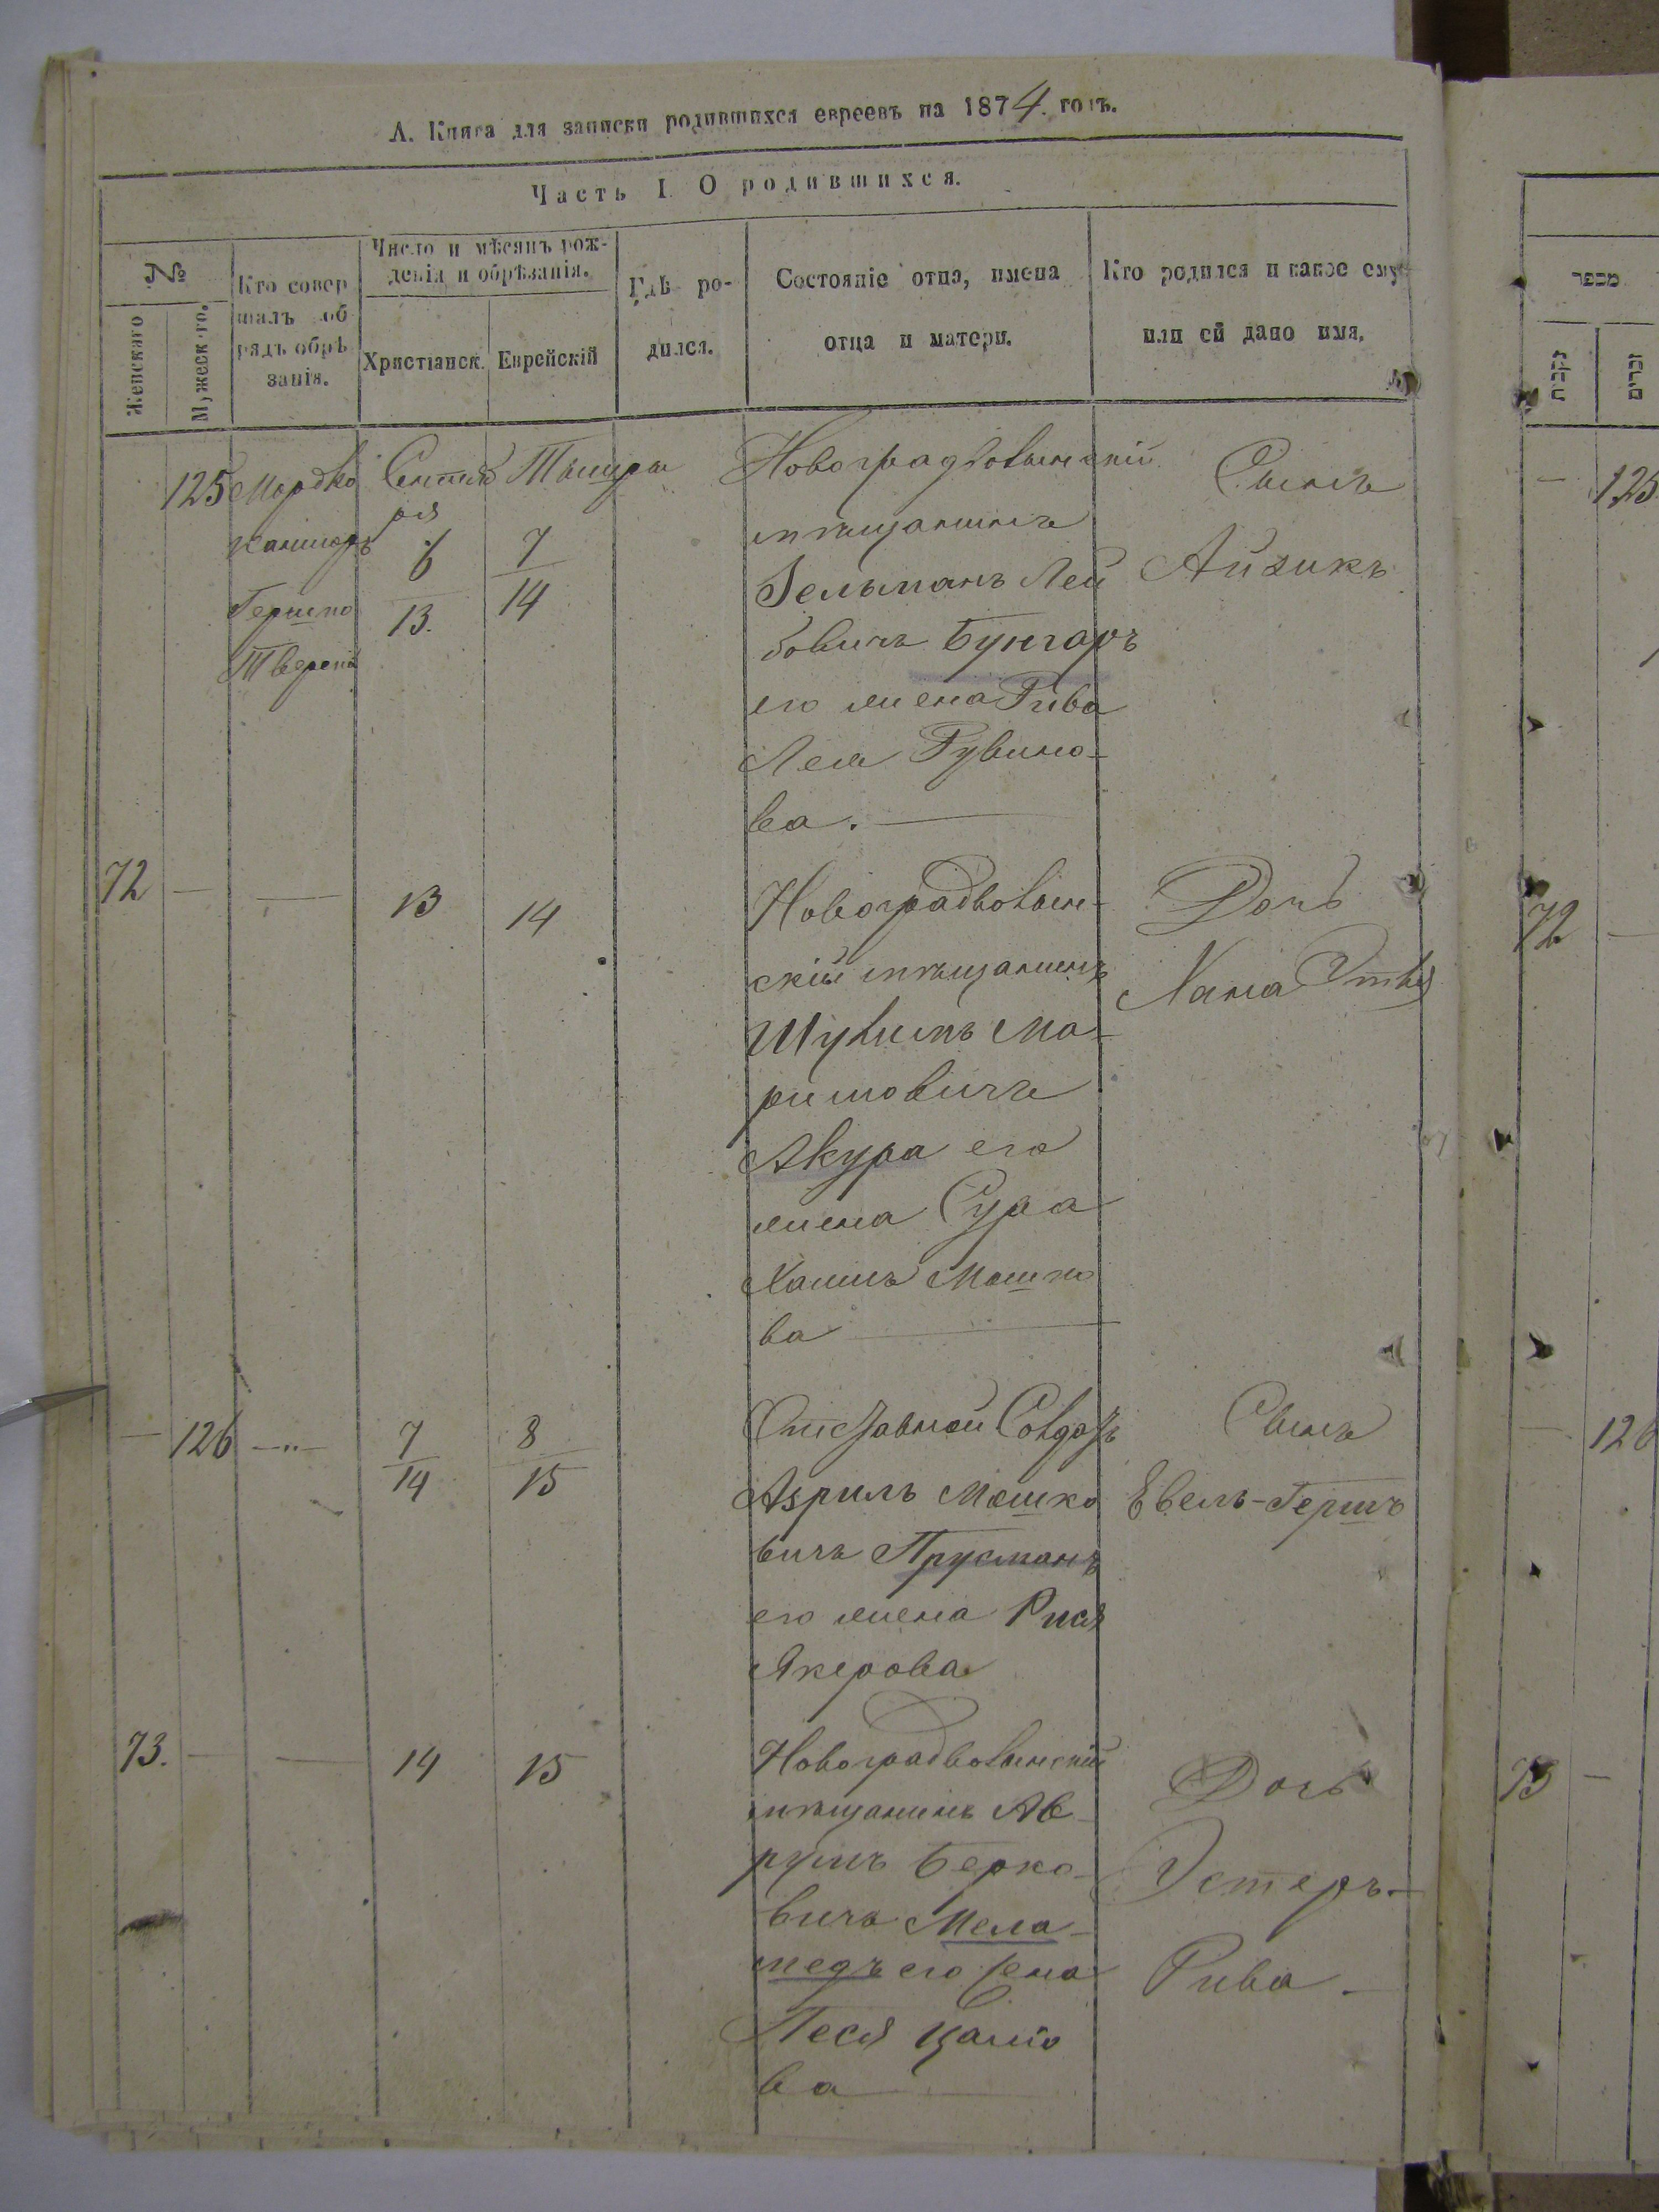 А. Книга для записки родившихся евреевъ на 1874 годъ.
Часть I. О родившихся.
№
Женскаго
Мужеск-го.
Кто совер
шалъ об
рядъ обрѣ
занія.
Число и мѣсяцъ рож-
денія и обрѣзанія.
Христіанск.
Еврейскій
Гдѣ ро-
дился.
Состояніе отца, имена
отца и матери.
Кто родился и какое ему
или ей дано имя.
125 Мордко
Гершко
Сентяб
ря
6
13.
7
14
Новоградволынскій
мѣщанинъ
Зельманъ Лей
бовичъ Бунгаръ
его жена Рива
Лея Рувино-
ва.
Сынъ
Айзикъ
72 — — 13 14
Новоградволын-
скій мѣщанинъ
его
жена Сура
Мошко
ва
Дочь
Хана
— 126 —„— 7
14
8
15
Отставной Солдатъ
Азрилъ Мошко
вичъ Прусманъ
его жена Рися
Якерова
Сынъ
Евель-Гершъ
73. — — 14 15
Новоградволынскій
мѣщанинъ Ав-
румъ Берко-
вичъ Мела-
медъ его жена
Песя
ва
Дочь
Эстеръ-
Рива
מספר
נקבות
זכרים
— 125
72 —
— 126
73 —